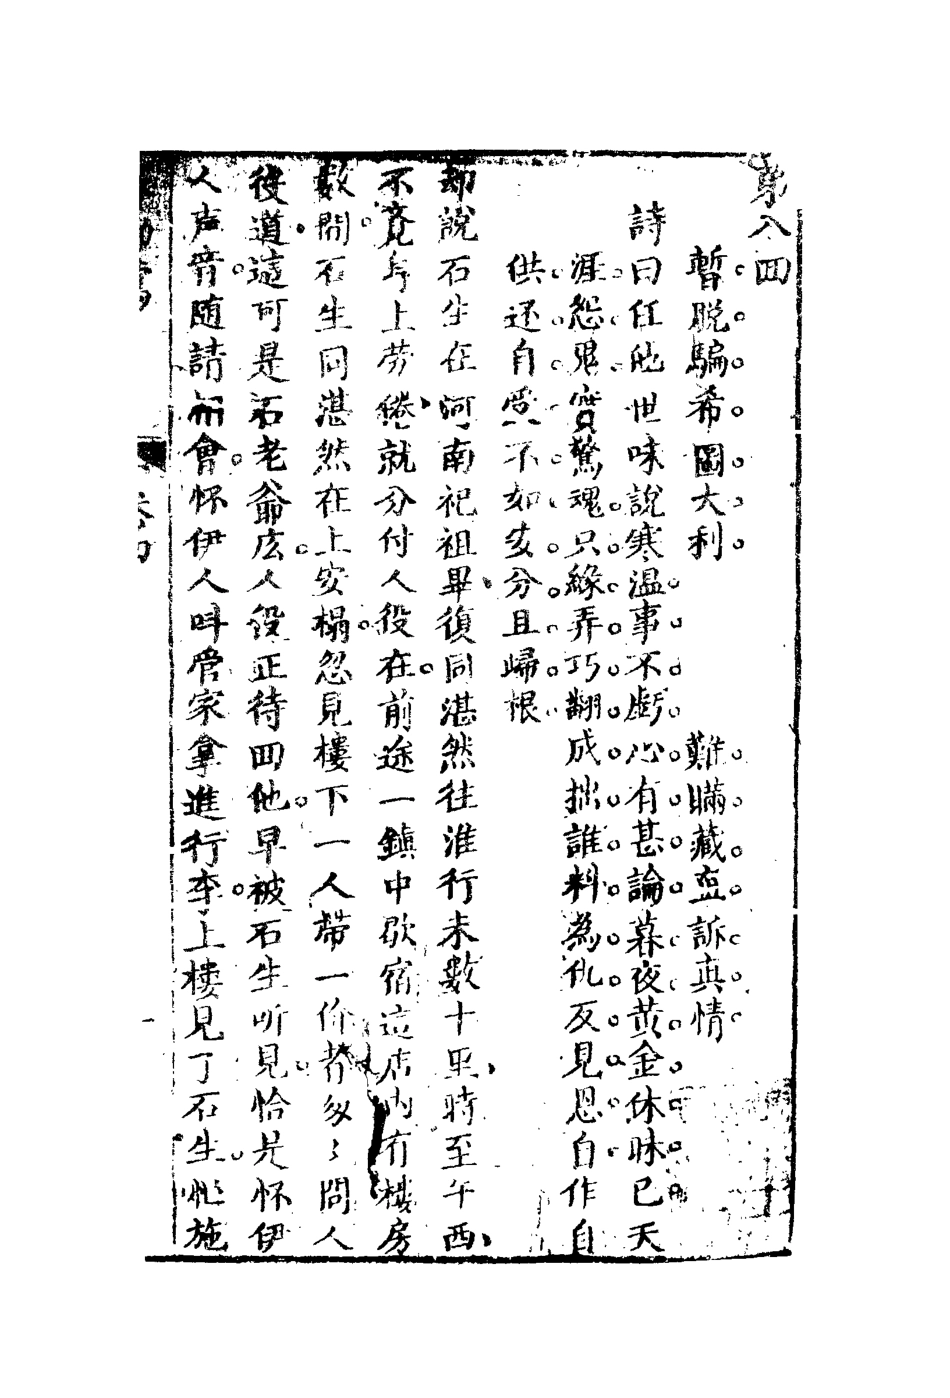 第八回
暫脫騙希圖大利　難瞞藏盃訴真情
詩曰任他世味說寒温事不虧心有甚論暮夜黄金休昧已天
涯怨鬼實驚魂只緣弄巧翻成拙誰料為仇反見恩自作自
供还自受不如安分且歸根
却說石生在河南祀祖畢復同湛然往淮行未數十里時至午西
不竟身上劳倦就分付人役在前途一鎮中歇宿這店内有楼房
数間石生同湛然在上安榻忽見樓下一人带一价者匆〻問人
役道這可是石老爺広人役正待回他早被石生听見恰是怀伊
人声音随請相會怀伊人呌管家拿進行李上楼見了石生忙施